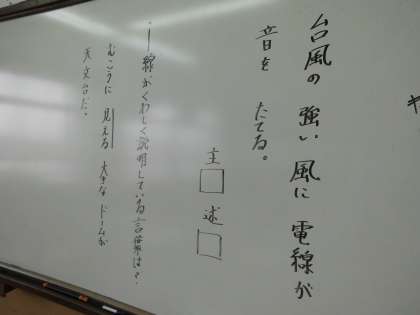 台風の 強い 風に 電線が
音を たてる。
主□ 述□
・―線がくわしく説明している言葉は?
むこうに 見える 大きな ドームが
天文台だ。